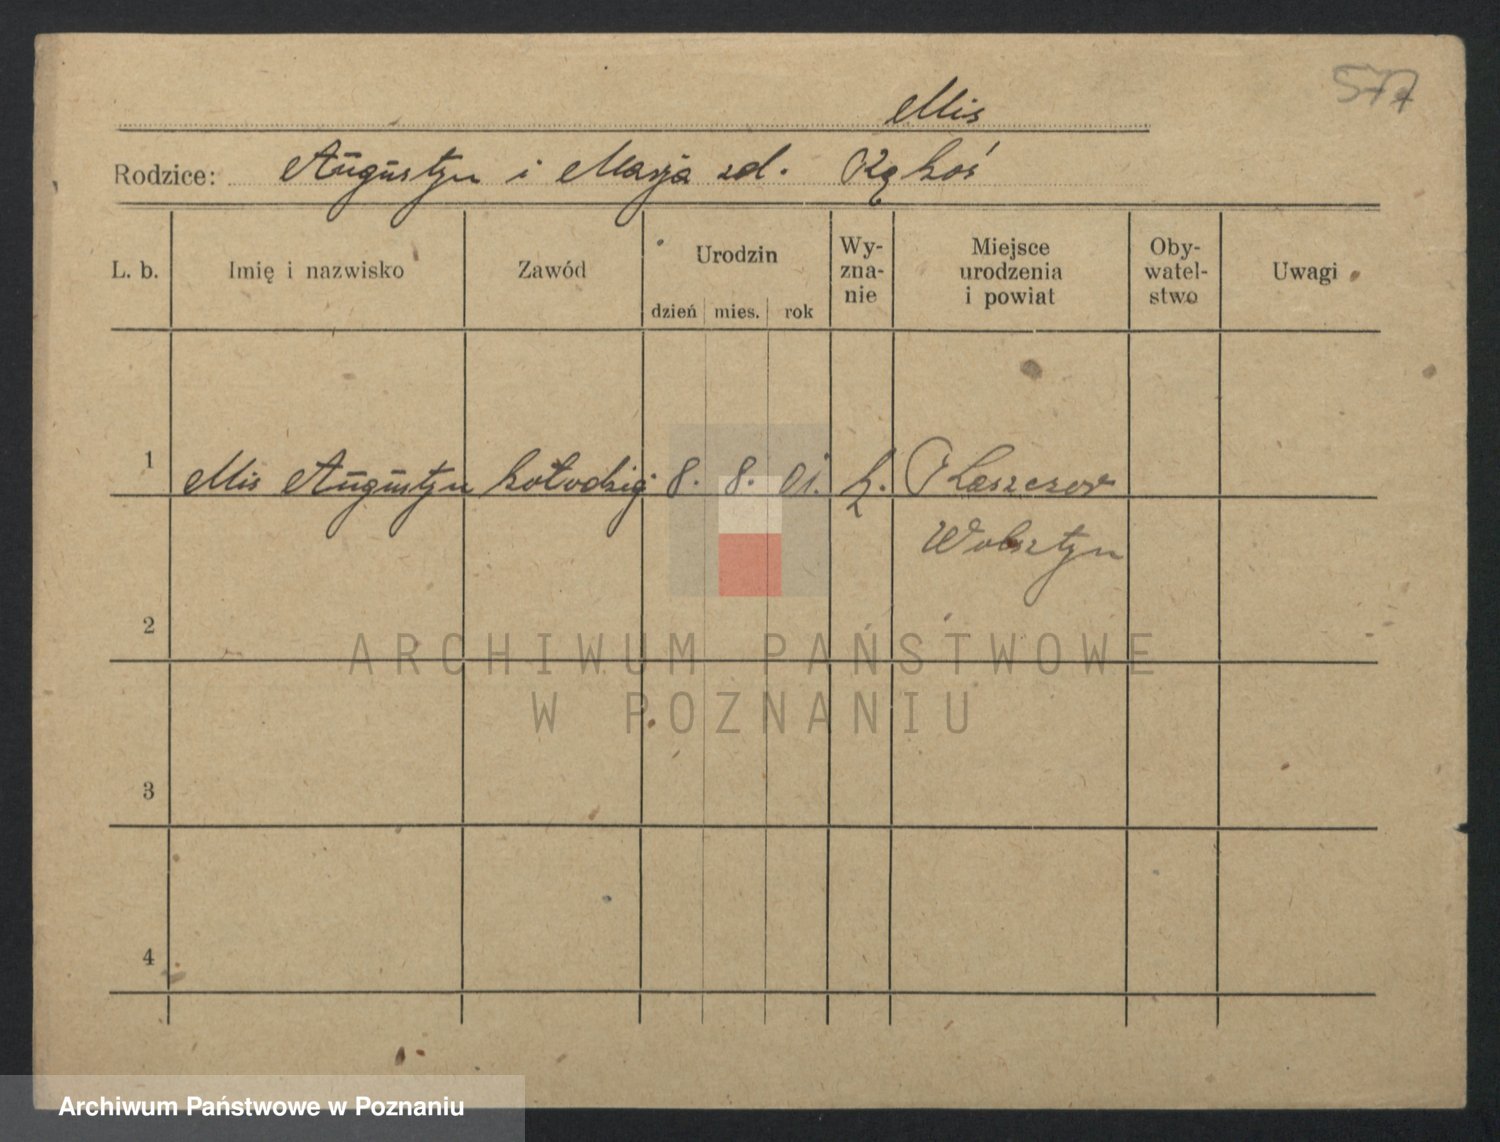 577
Mis
Rodzice: Augustyn i Marja zd. Kękoś
L. b. Imię i nazwisko Zawód Urodzin dzień mies. rok Wyznanie Miejsce urodzenia i powiat Obywatelstwo Uwagi
1 Mis Augustyn kołodziej 8. 8. 01. k.
Wolsztyn
2
ARCHIWUM PAŃSTWOWE
W POZNANIU
3
4
Archiwum Państwowe w Poznaniu